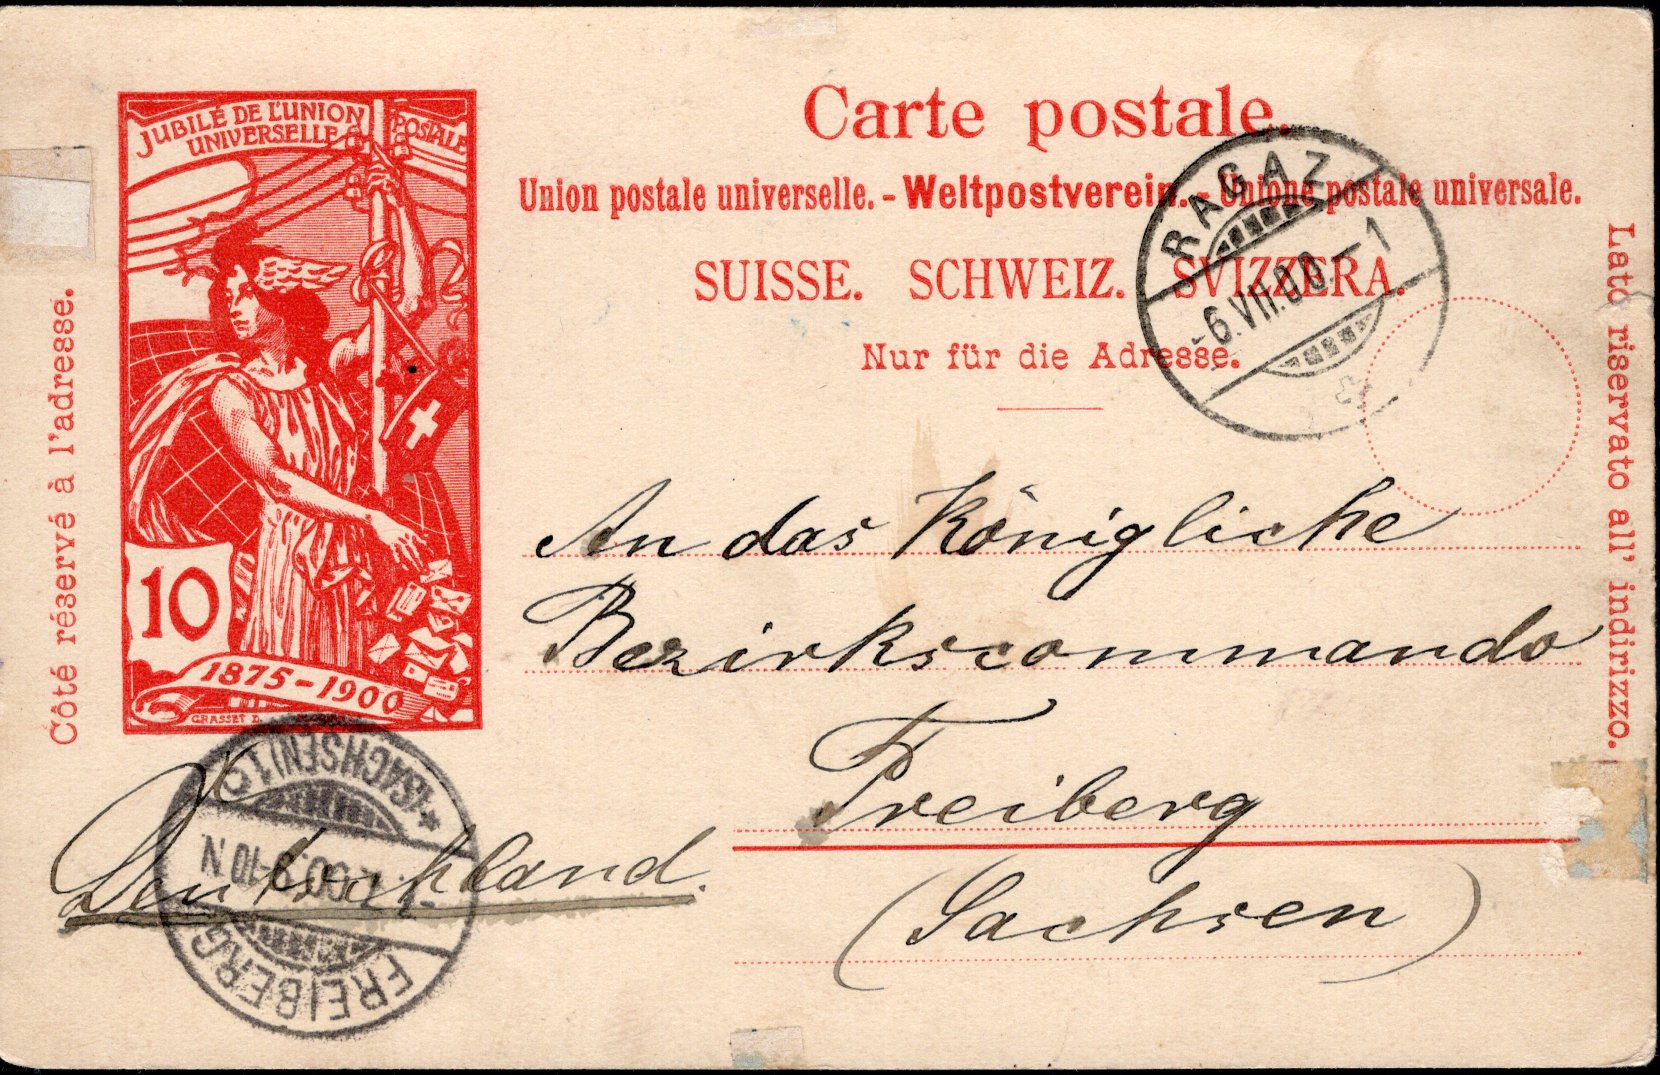 JUBILÉ DE L'UNION POSTALE
UNIVERSELLE
10
1875-1900
GRASSET D.
Côté réservé à l'adresse.
Carte postale.
Union postale universelle. - Weltpostverein. - Unione postale universale.
SUISSE. SCHWEIZ. SVIZZERA.
Nur für die Adresse.
Lato riservato all' indirizzo.
RAGAZ
-6.VII.00-1
An das Königliche
Bezirkscommando
Freiberg
(Sachsen)
Deutschland.
FREIBERG
*(SACHSEN)1
9-10 N